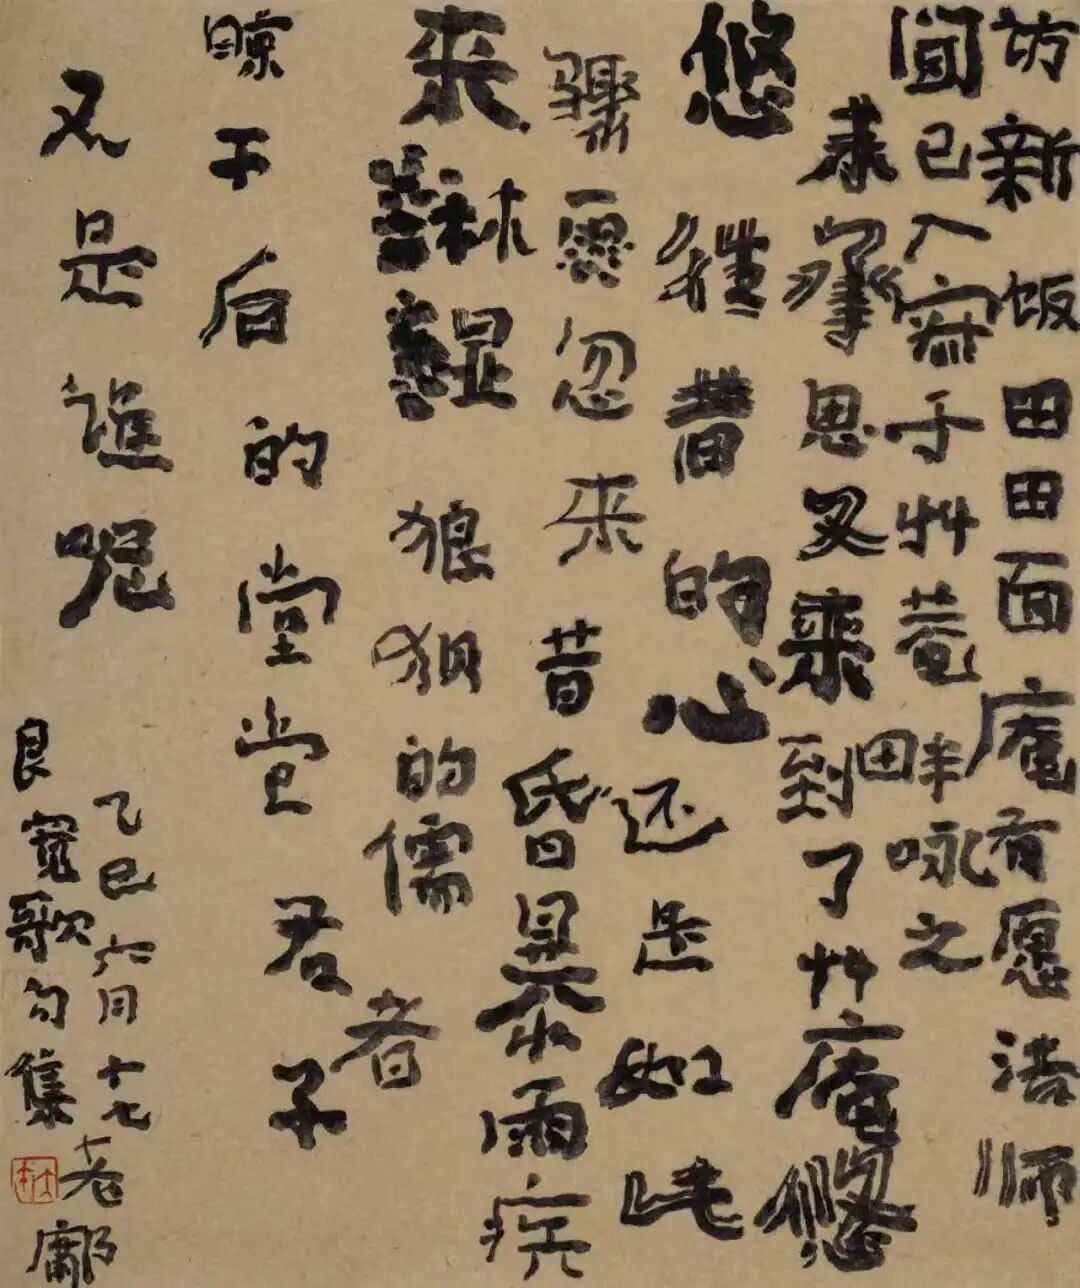 访新饭田田面庵有愿法师
闻已入寂于艸菴田畔咏之
思又来到了艸庵悠
悠往昔的心还是如此
骤雨忽来昔昏暴雨疾
来狼狈的儒者
晾干后的堂堂君子
又是谁呢
乙巳六月十七老鄘
良宽歌句集